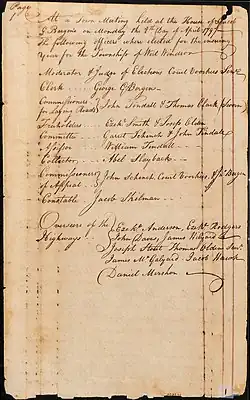 Page
1
At a Town Meeting held at the House of
Bergens on Monday the Day of April 1797
The following officers where elected for the insuing
year for the Township of West Windsor
Moderator & Judge of Elections Court Voorhees
Clerk George G Bergen
Commissioners John Tindall & Thomas Clark
for Laying Roads
Freeholders Ezek Smith & Joseph Olden
Committee Garret Schenck & John Tindall
Assessor William Tindall
Collector Abel Slayback
Commissioners John Schenck Court Voorhees Bergen
of Appeal
Constable Jacob Skilman
Overseers of the Ezekl Anderson, Ezekl Rodgers
Highways John Davis, James Hilyard
Joseph Stout Thomas Olden Junr
James McGalyard Jacob
Daniel Mershon
1